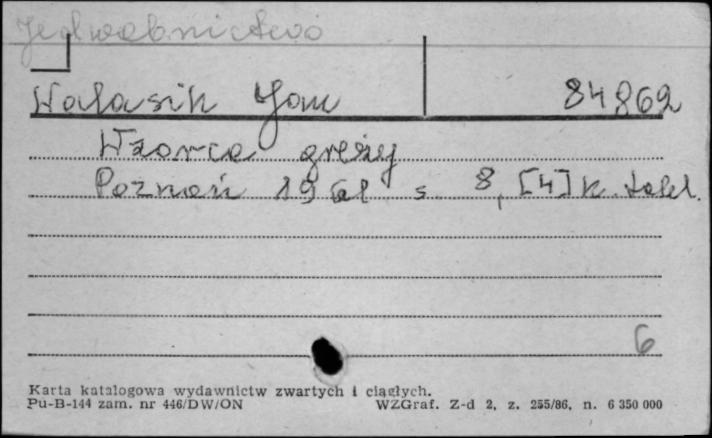 Jedwabnictwo
Walasik Jan 84862
Wzorce gręży
Poznań 1961 s. 8, [4] k. tabl.
6
Karta katalogowa wydawnictw zwartych i ciągłych.
Pu-B-144 zam. nr 446/DW/ON WZGraf. Z-d 2, z. 255/86, n. 6 350 000